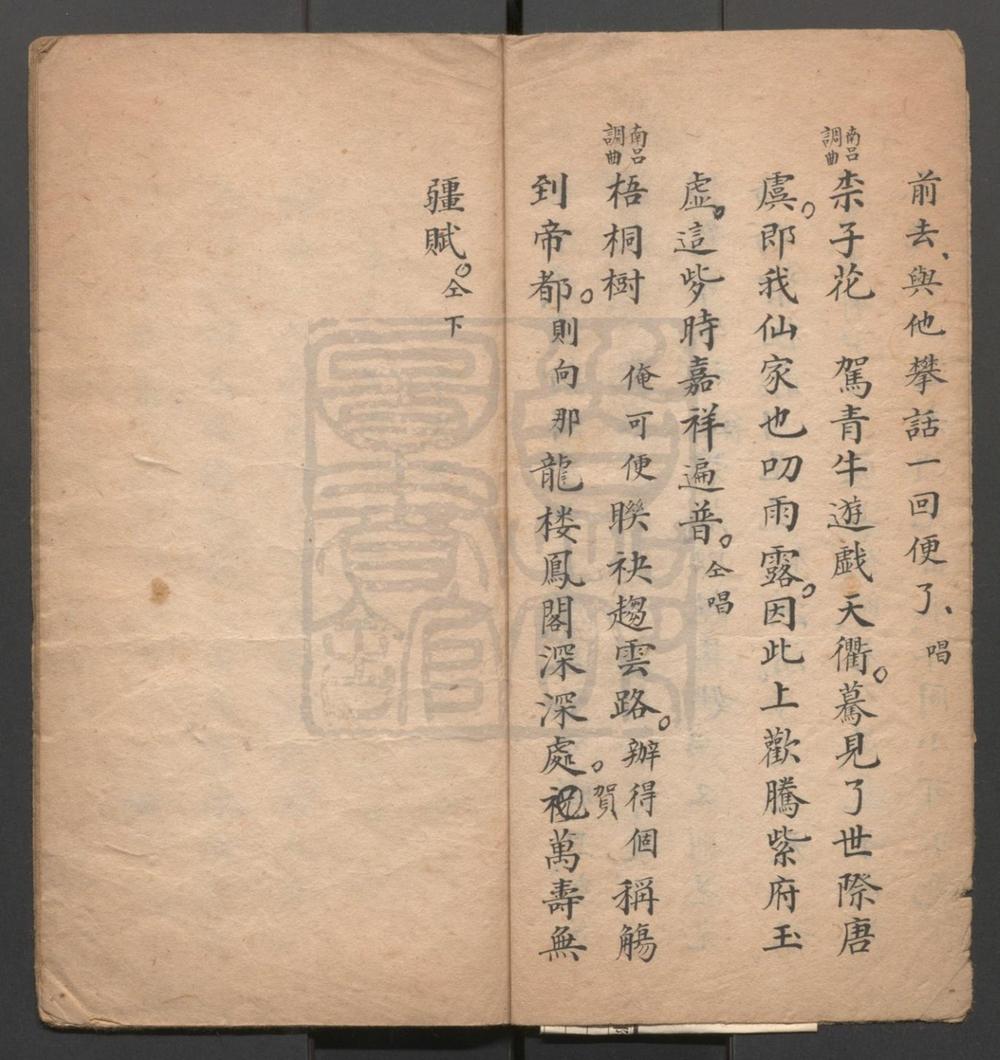 前去、與他攀話一回便了、唱
南呂調曲
柰子花　駕青牛遊戲天衢。驀見了世際唐
虞。即我仙家也叨雨露。因此上歡騰紫府玉
虛。這些時嘉祥遍普。仝唱
南呂調曲
梧桐樹　俺可便聯袂趨雲路。辦得個稱觴
到帝都。則向那龍楼鳳閣深深處。祝賀萬壽無
疆賦。仝下